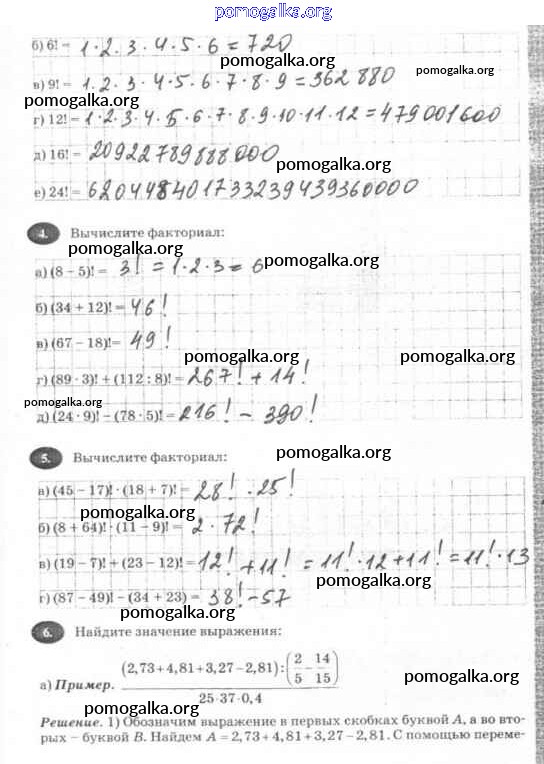 pomogalka.org
б) 6! = 1·2·3·4·5·6 = 720
в) 9! = 1·2·3·4·5·6·7·8·9 = 362 880
pomogalka.org
pomogalka.org
г) 12! = 1·2·3·4·5·6·7·8·9·10·11·12 = 479 001 600
д) 16! = 20922789888000
pomogalka.org
е) 24! = 620448401733239439360000
4. Вычислите факториал:
pomogalka.org
а) (8 − 5)! = 3! = 1·2·3 = 6
pomogalka.org
б) (34 + 12)! = 46!
в) (67 − 18)! = 49!
pomogalka.org pomogalka.org
г) (89 · 3)! + (112 : 8)! = 267! + 14!
pomogalka.org
д) (24 · 9)! − (78 · 5)! = 216! − 390!
pomogalka.org
5. Вычислите факториал:
а) (45 − 17)! · (18 + 7)! = 28! · 25!
pomogalka.org
б) (8 + 64)! · (11 − 9)! = 2 · 72!
в) (19 − 7)! + (23 − 12)! = 12! + 11! = 11! · 12 + 11! = 11! · 13
pomogalka.org
г) (87 − 49)! − (34 + 23) = 38! − 57
pomogalka.org
6. Найдите значение выражения:
(2,73+4,81+3,27−2,81):(2/5−14/15)
а) Пример.
25·37·0,4
pomogalka.org
pomogalka.org
Решение. 1) Обозначим выражение в первых скобках буквой A, а во вто-
рых – буквой B. Найдем A = 2,73+4,81+3,27−2,81. С помощью переме-